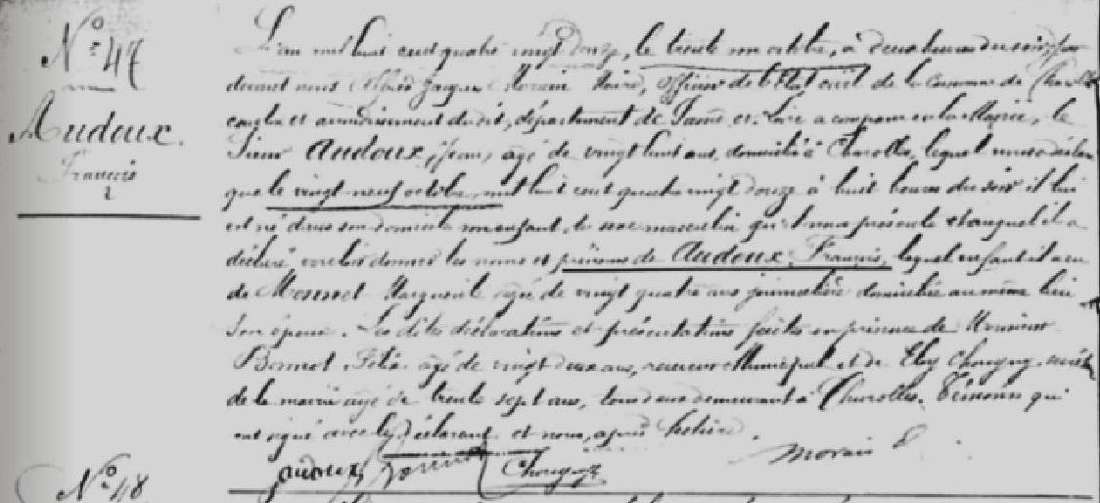 N° 47
Audoux
François
L'an mil huit cent quatre vingt douze, le trente un octobre, à deux heures du soir, par
devant nous Alfred Jacques Morain Maire, officier de l'Etat civil de la Commune de Charolles
canton et arrondissement dudit, département de Saône et Loire a comparu en la Mairie, le
Sieur Audoux, Jean, âgé de vingt huit ans, domicilié à Charolles, lequel nous a déclaré
que le vingt neuf octobre mil huit cent quatre vingt douze à huit heures du soir il lui
est né dans son domicile un enfant de sexe masculin qu'il nous présente et auquel il a
déclaré vouloir donner les noms et prénoms de Audoux, François, lequel enfant il a eu
de Monnet Marguerite âgée de vingt quatre ans journalière domiciliée au même lieu
son épouse. Les dites déclarations et présentations faites en présence de Monsieur
Bonnot Félix âgé de vingt deux ans, receveur Municipal et de Chougny
de la mairie âgé de trente sept ans, tous deux demeurant à Charolles. Témoins qui
ont signé avec le Déclarant et nous, après lecture
Audoux Chougny Morain
N° 48